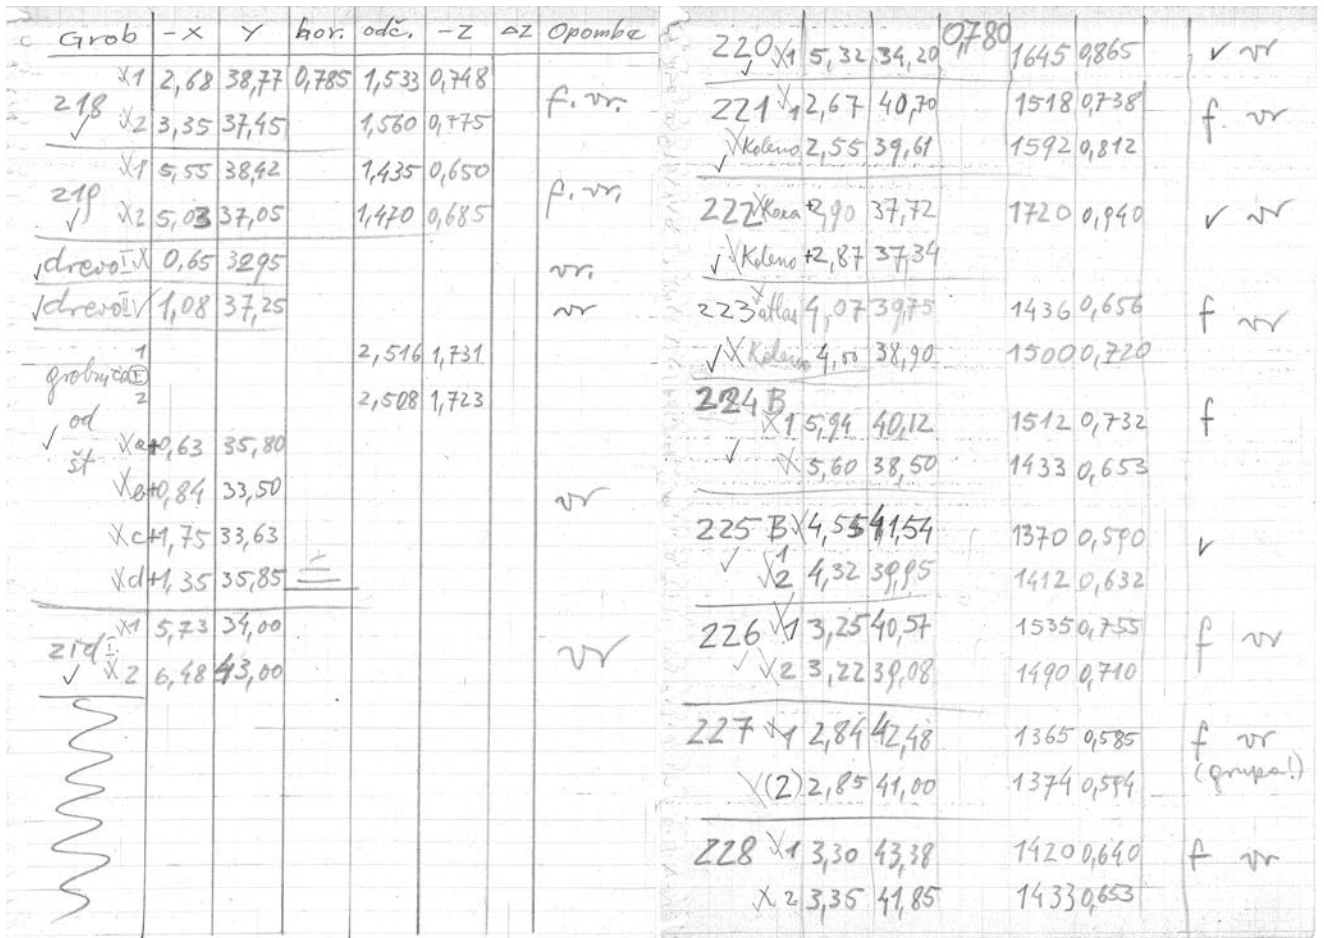 Grob -X Y hor. odč. -Z ΔZ Opomba
X1 2,68 38,77 0,785 1,533 0,748
218 f. vr.
✓ X2 3,35 37,45 1,560 0,775
X1 5,55 38,42 1,435 0,650
219 f. vr.
✓ X2 5,03 37,05 1,470 0,685
✓ drevo I X 0,65 3295 vr.
✓ drevo II V 1,08 37,25 vr
1 2,516 1,731
grobnica I
2 2,508 1,723
od
✓ št Xa +0,63 35,80
Xb +0,84 33,50 vr
Xc +1,75 33,63
Xd +1,35 35,85
X1 5,73 34,00
zid I vr
✓ X2 6,48 43,00
0,780
220 X1 5,32 34,20 1645 0,865 v vr
✓
221 X1 2,67 40,70 1518 0,738 f. vr
✓ X Koleno 2,55 39,61 1592 0,812
222 X Koxa +2,90 37,72 1720 0,940 v vr
✓ X Koleno +2,87 37,34
223 X atlas 4,07 39,75 1436 0,656 f vr
✓ X Koleno 4,00 38,90 1500 0,720
224 B
X1 5,94 40,12 1512 0,732 f
✓ X 5,60 38,50 1433 0,653
225 B X1 4,55 41,54 1370 0,590 v
✓ X2 4,32 39,95 1412 0,632
226 X1 3,25 40,57 1535 0,755 f vr
✓ X2 3,22 39,08 1490 0,710
227 X1 2,84 42,48 1365 0,585 f vr
(grupa!)
X(2) 2,85 41,00 1374 0,594
228 X1 3,30 43,38 1420 0,640 f vr
X2 3,35 41,85 1433 0,653